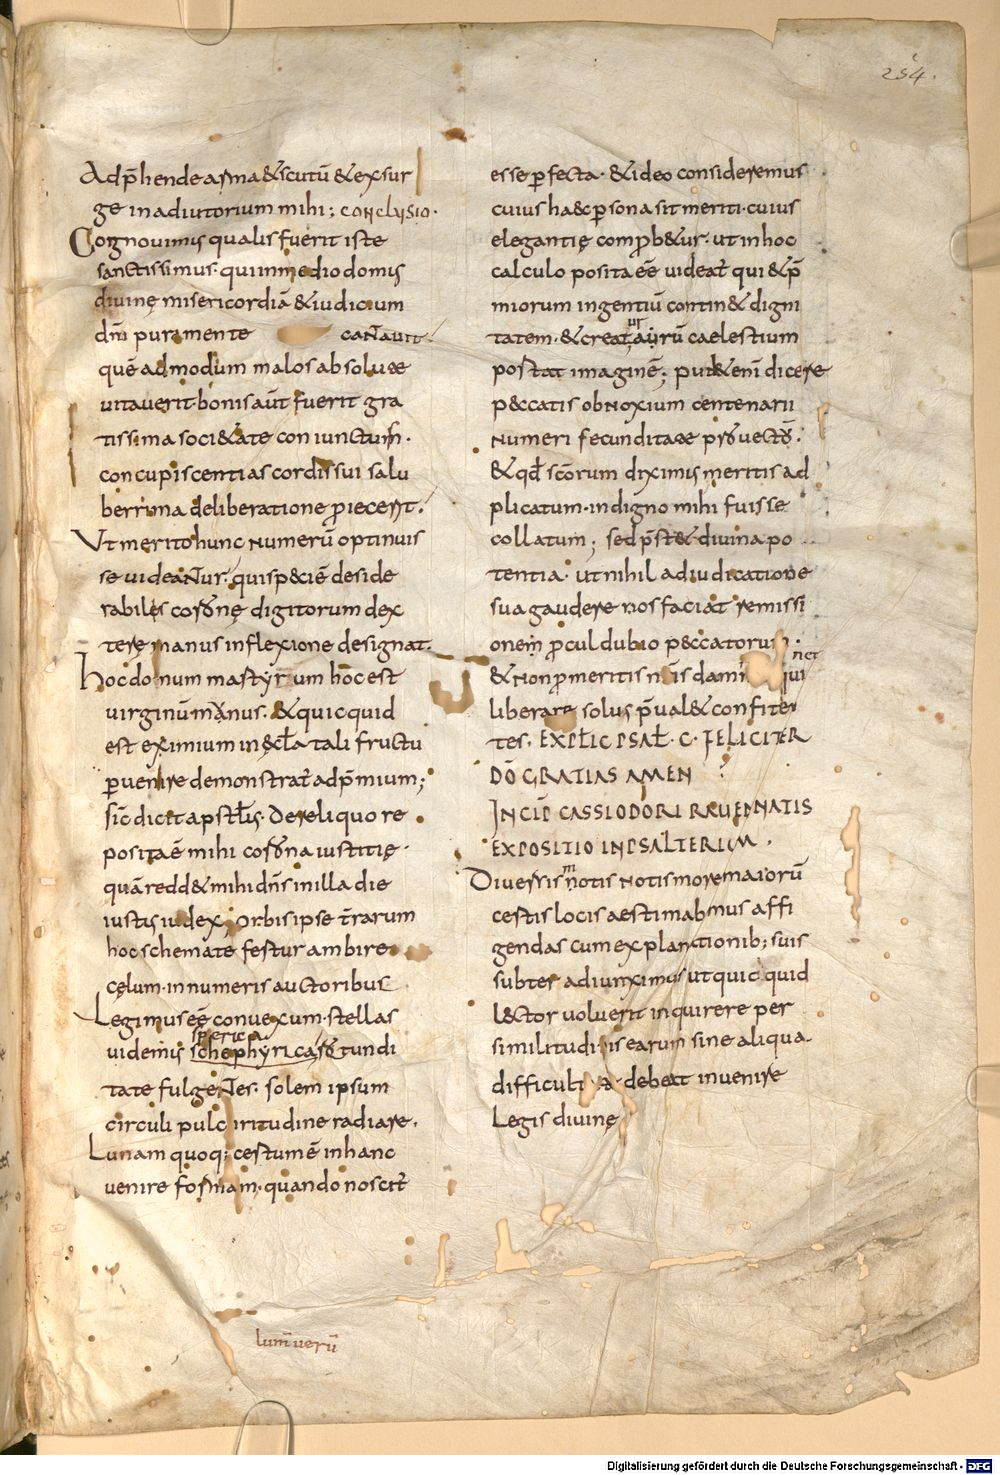 254.
Adp̄hende arma & scutū & exsur
ge in adiutorium mihi; conclusio.
Cognovimus qualis fuerit iste
sanctissimus. qui in medio domus
divinę misericordiā & iudicium
dn̄i pura mente cantavit.
quēadmodum malos absolute
vitaverit. bonis aūt fuerit gra
tissima societate coniunctus.
concupiscentias cordis sui salu
berrima deliberatione proiecerit.
Ut merito hunc numerū optinuis
se videatur. qui speciē deside
rabiles coronę digitorum dex
terę manus inflexione designat.
hoc donum martyrum hoc est
virginū munus. & quicquid
est eximium in ęccła tali fructu
pervenire demonstrat ad p̄mium;
sic̄ dicit apstłs. De reliquo re
posita ē mihi corona iustitię.
quā redd& mihi dn̄s in illa die
iustus iudex. Orbis ipse terrarum
hoc schemate fertur ambire
cęlum. innumeris auctoribus
Legimus eē convexum. stellas
sperica
videmus schephyricas rotundi
tate fulgentes. solem ipsum
circuli pulchritudine radiare.
Lunam quoq; certum ē in hanc
venire formam. quando noscit
esse perfecta. & ideo consideremus
cuius haec persona sit meriti. cuius
elegantię comprob&ur. ut in hoc
calculo posita eē videat qui & p̄
miorum ingentiū contin& digni
tatem. & creaturarū caelestium
portat imaginē; put& enī dicere
peccatis obnoxium centenarii
numeri fecunditate provectus.
& qd̄ scōrum diximus meritis ad
plicatum. indigno mihi fuisse
collatum; sed p̄st& divina po
tentia. ut nihil adiudicatione
sua gaudere nos faciat remissi
onem procul dubio peccatorum.
& non pro meritis nris damnet qui
liberare solus p̄val& confiten
tes. EXPLIC PSAL. C. FELICITER
DŌ GRATIAS AMEN
INCIP CASSIODORI RAVENNATIS
EXPOSITIO IN PSALTERIUM.
Diversis notis notis more maiorū
certis locis aestimabimus affi
gendas cum explanationib; suis
subter adiunximus ut quicquid
lector voluerit inquirere per
similitudinis earum sine aliqua
difficultate debeat invenire
Legis divinę
lum̄ verū
Digitalisierung gefördert durch die Deutsche Forschungsgemeinschaft - DFG